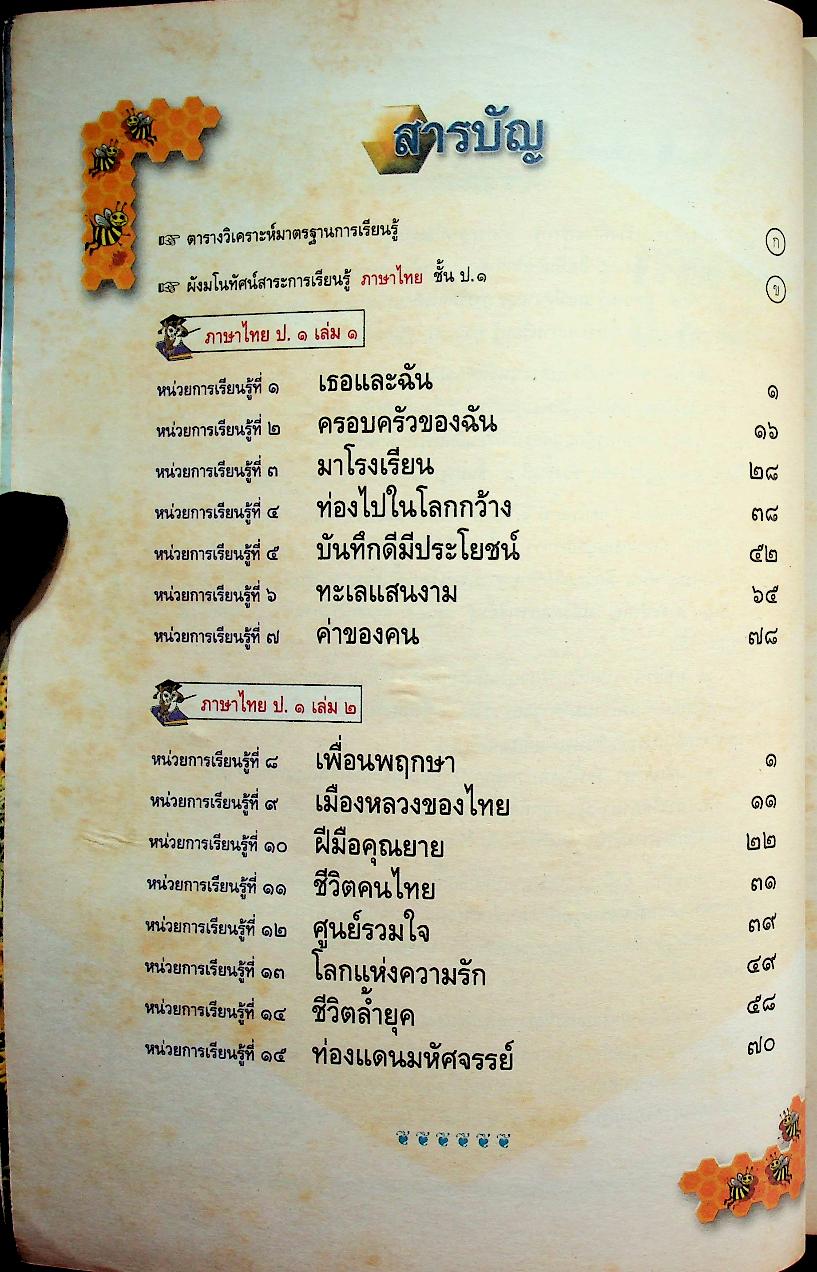 สารบัญ
☞ ตารางวิเคราะห์มาตรฐานการเรียนรู้ ก
☞ ผังมโนทัศน์สาระการเรียนรู้ ภาษาไทย ชั้น ป.๑ ข
ภาษาไทย ป. ๑ เล่ม ๑
หน่วยการเรียนรู้ที่ ๑ เธอและฉัน ๑
หน่วยการเรียนรู้ที่ ๒ ครอบครัวของฉัน ๑๖
หน่วยการเรียนรู้ที่ ๓ มาโรงเรียน ๒๘
หน่วยการเรียนรู้ที่ ๔ ท่องไปในโลกกว้าง ๓๘
หน่วยการเรียนรู้ที่ ๕ บันทึกดีมีประโยชน์ ๕๒
หน่วยการเรียนรู้ที่ ๖ ทะเลแสนงาม ๖๕
หน่วยการเรียนรู้ที่ ๗ ค่าของคน ๗๘
ภาษาไทย ป. ๑ เล่ม ๒
หน่วยการเรียนรู้ที่ ๘ เพื่อนพฤกษา ๑
หน่วยการเรียนรู้ที่ ๙ เมืองหลวงของไทย ๑๑
หน่วยการเรียนรู้ที่ ๑๐ ฝีมือคุณยาย ๒๒
หน่วยการเรียนรู้ที่ ๑๑ ชีวิตคนไทย ๓๑
หน่วยการเรียนรู้ที่ ๑๒ ศูนย์รวมใจ ๓๙
หน่วยการเรียนรู้ที่ ๑๓ โลกแห่งความรัก ๔๙
หน่วยการเรียนรู้ที่ ๑๔ ชีวิตล้ำยุค ๕๘
หน่วยการเรียนรู้ที่ ๑๕ ท่องแดนมหัศจรรย์ ๗๐